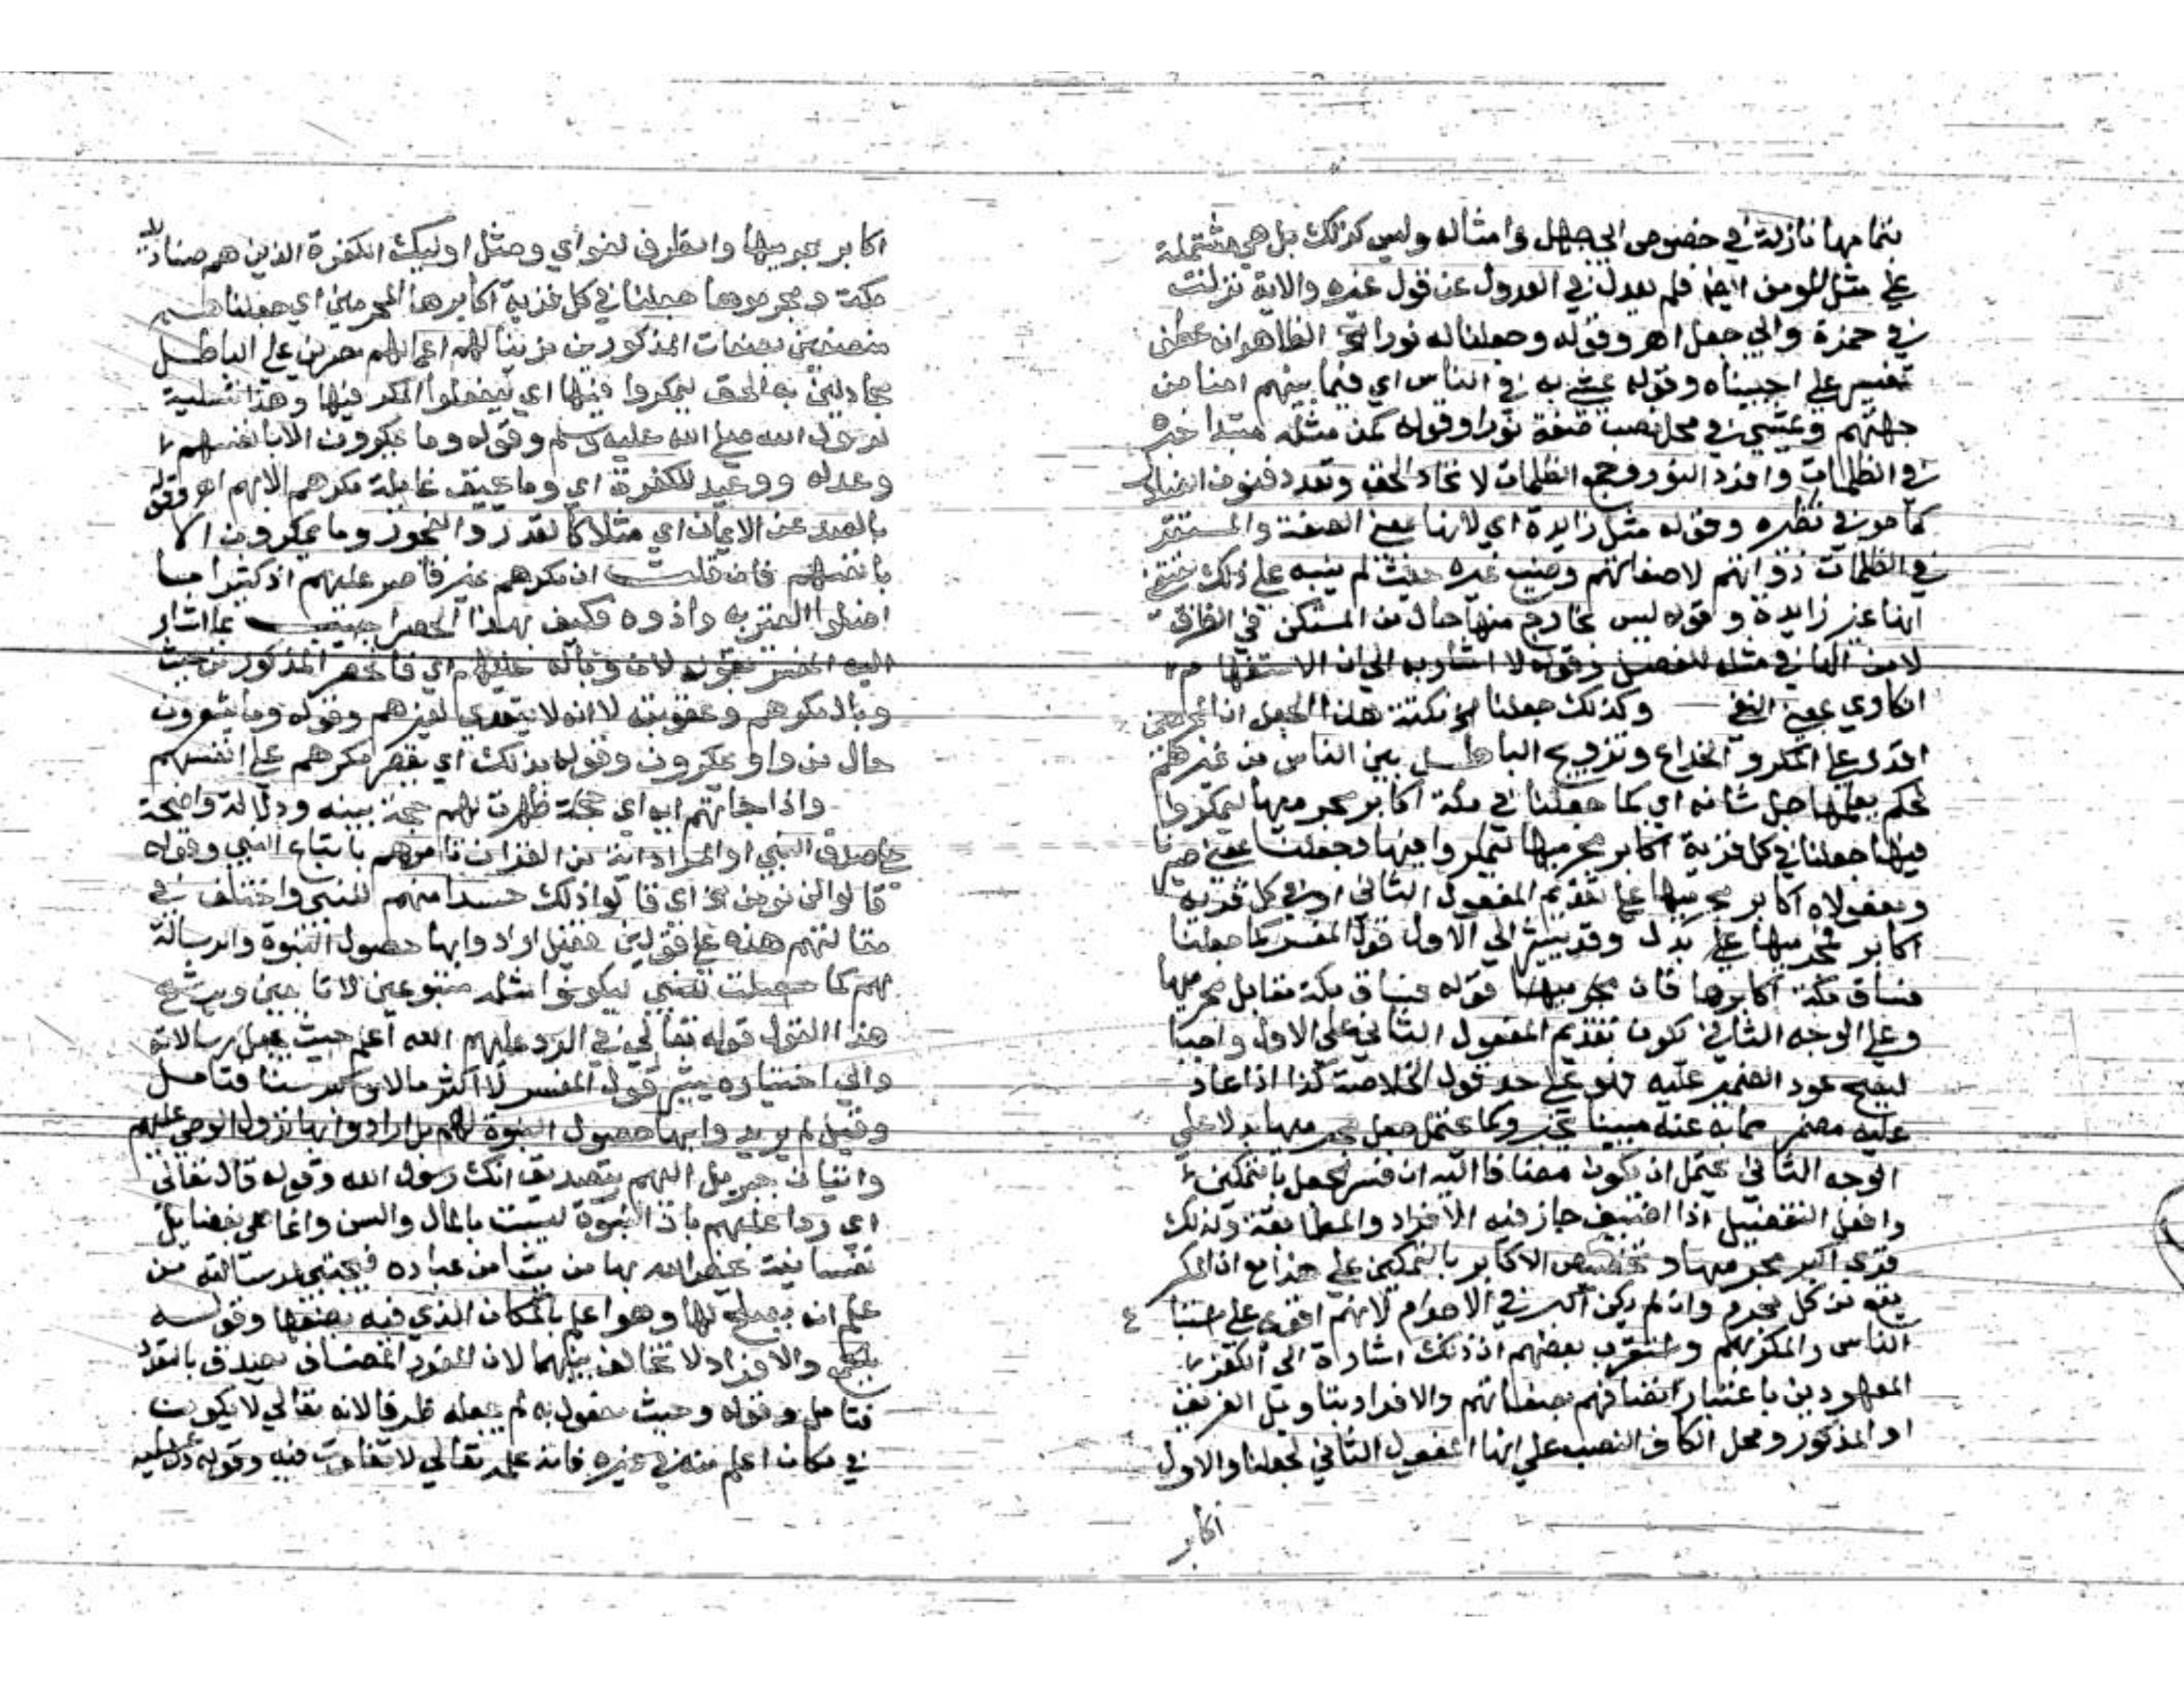 بتمامها نازلة في خصوص ابي جهل وامثاله وليس كذلك بل هي مشتملة
علي مثل المومن ايضا فلم يعدل في العدول عن قول غيره والاية نزلت
في حمزة وابي جهل اهر وقوله وجعلنا له نورا الخ الظاهر انه عطف
تفسير علي احييناه وقوله يمشي به في الناس اي فيما بينهم امنا من
جهتهم ويمشي في محل نصب صفة نورا وقوله كمن مثله مبتدا خبره
في الظلمات وافرد النور وجمع الظلمات لاتحاد الحق وتعدد فنون الضلال
كما مر في نظيره وقوله مثل زايدة اي لانها بمعني الصفة والمستقر
في الظلمات ذواتهم لاصفاتهم وصنيع غيره حيث لم ينبه علي ذلك يقتضي
انها غير زايدة وقوله ليس بخارج منها حال من المستكن في الظرف
لا من الها في مثله للفصل وقوله لا اشار به الي ان الاستفهام
انكاري بمعني النفي وكذلك جعلنا الخ نكتة هذا الجعل ان المجرمين
اقدر علي المكر والخداع وترويج الباطل بين الناس من غيرهم
لحكم يعلمها جل شانه اي كما جعلنا في مكة اكابر مجرميها ليمكروا
فيها جعلنا في كل قرية اكابر مجرميها ليمكروا فيها وجعلنا بمعني صيرنا
ومفعولاه اكابر مجرميها علي تقديم المفعول الثاني او في كل قرية
اكابر مجرميها علي بدل وقد يشير الي الاول قول المفسر كما جعلنا
فساق مكة اكابرها فان مجرميها قوله فساق مكة مقابل مجرميها
وعلي الوجه الثاني يكون تقديم المفعول الثاني علي الاول واجبا
ليصح عود الضمير عليه فهو علي حد قول الخلاصة كذا اذا عاد
عليه مضمر مما به عنه مبينا يخبر وكما يحتمل جعل مجرميها بدلا علي
الوجه الثاني يحتمل ان يكون مضافا اليه ان فسر الجعل بالتمكين
وافعل التفضيل اذا اضيف جاز فيه الافراد والمطابقة ولذلك
قري اكبر مجرميها وتخصيص الاكابر بالتمكين علي هذا مع ان المكر
يقع من كل مجرم وان لم يكن اكبر في الاجرام لانهم اقوي علي
الناس والمكر بهم واستقرب بعضهم ان ذلك اشارة الي الكفرة
المعهودين باعتبار اتصافهم بصفاتهم والافراد بتاويل الفريق
او المذكور ومحل الكاف النصب علي انها المفعول الثاني لجعلنا والاول
اكابر
اكابر مجرميها والظرف لغو اي ومثل اوليك الكفرة الذين هم صناديد
مكة ومجرموها جعلنا في كل قرية اكابرها المجرمين اي جعلناهم
متصفين بصفات المذكورين مزينا لهم اعمالهم مصرين علي الباطل
مجادلين به الحق ليمكروا فيها اي ليفعلوا المكر فيها وهذا تسلية
لرسول الله صلي الله عليه وسلم وقوله وما يمكرون الا بانفسهم
وعد له ووعيد للكفرة اي وما يحيق غايلة مكرهم الا بهم اهر وقوله
بالصد عن الايمان اي مثلا كالغدر والفجور وما يمكرون الا
بانفسهم فان قلت ان مكرهم غير قاصر عليهم اذ كثيرا ما
اضلوا الغير به واذوه فكيف بهذا الحصر اجيب بما اشار
اليه المفسر بقوله لان وباله عليهم اي فالحصر المذكور من حيث
وبال مكرهم وعقوبته لا انه لا يتعدي لغيرهم وقوله وما يشعرون
حال من واو يمكرون وقوله بذلك اي بقصر مكرهم علي انفسهم
واذا جاتهم اية اي حجة ظهرت لهم حجة بينة ودلالة واضحة
علي صدق النبي او المراد اية من القران تامرهم باتباع النبي وقوله
قالوا لن نومن الخ اي قالوا ذلك حسدا منهم للنبي واختلف في
مقالتهم هذه علي قولين فقيل ارادوا بها حصول النبوة والرسالة
لهم كما حصلت للنبي ليكونوا مثله متبوعين لا تابعين ويرشح
هذا القول قوله تعالي في الرد عليهم الله اعلم حيث يجعل رسالاته
والي اختياره يشير قول المفسر لانا اكثر مالا واكبر سنا فتامل
وقيل لم يريدوا بها حصول النبوة لهم بل ارادوا بها نزول الوحي عليهم
واتيان جبريل اليهم بتصديق انك رسول الله وقوله قال تعالي
اي ردا عليهم بان النبوة ليست بالمال والسن وانما هي بفضايل
نفسانية يخص الله بها من يشا من عباده فيجتبي لرسالته من
علم انه يصلح لها وهو اعلم بالمكان الذي فيه يضعها وقوله
بالجمع والافراد لا تخالف بينهما لان المفرد المضاف يصدق بالتعدد
فتامل وقوله وحيث مفعول به لم يجعله ظرفا لانه تعالي لا يكون
في مكان اعلم منه في غيره فانه علمه تعالي لا تفاوت فيه وقوله دل عليه